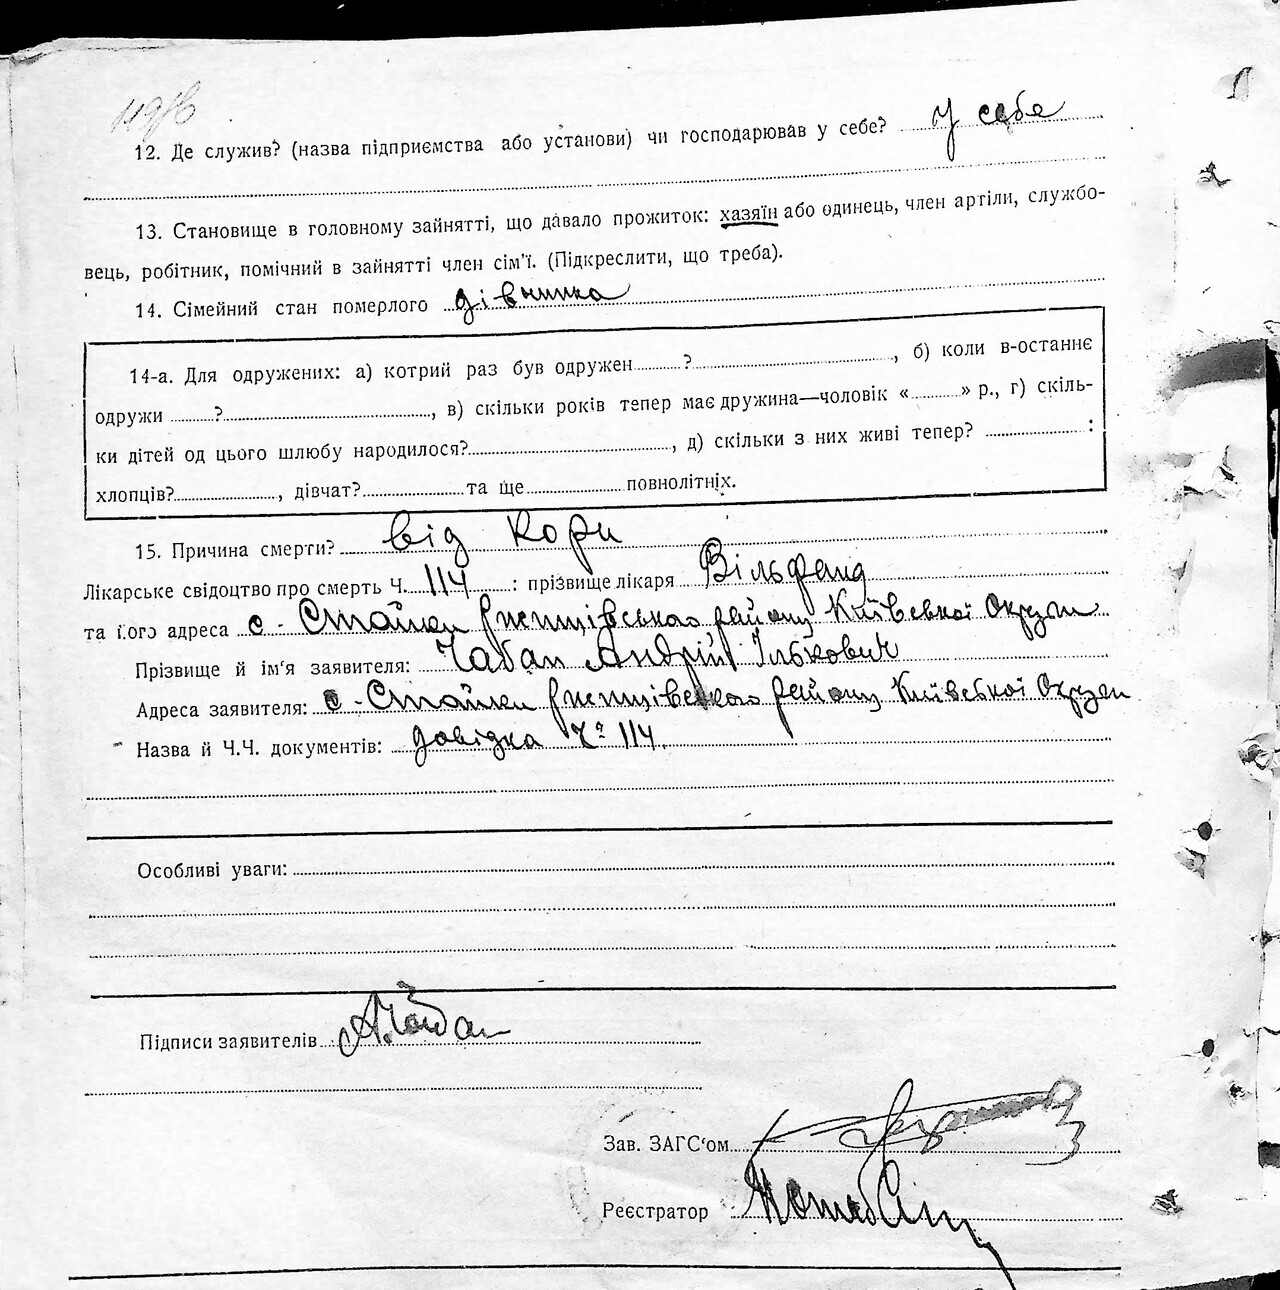 12. Де служив? (назва підприємства або установи) чи господарював у себе? у себе
13. Становище в головному зайнятті, що давало прожиток: хазяїн або одинець, член артіли, службо-
вець, робітник, помічний в зайнятті член сім'ї. (Підкреслити, що треба).
14. Сімейний стан померлого дівчинка
14-а. Для одружених: а) котрий раз був одружен ? , б) коли в-останнє
одружи ? , в) скільки років тепер має дружина—чоловік « » р., г) скіль-
ки дітей од цього шлюбу народилося? , д) скільки з них живі тепер? :
хлопців? , дівчат? та ще повнолітніх.
15. Причина смерти? від кори
Лікарське свідоцтво про смерть Ч. 114 : прізвище лікаря Вільфанд
та його адреса с. Стайки Ржищівського району Київської Округи
Прізвище й ім'я заявителя: Чабан Андрій Ількович
Адреса заявителя: с. Стайки Ржищівського району Київської Округи
Назва й Ч.Ч. документів: довідка Ч° 114.
Особливі уваги:
Підписи заявителів А.Чабан
Зав. ЗАГС'ом
Реєстратор